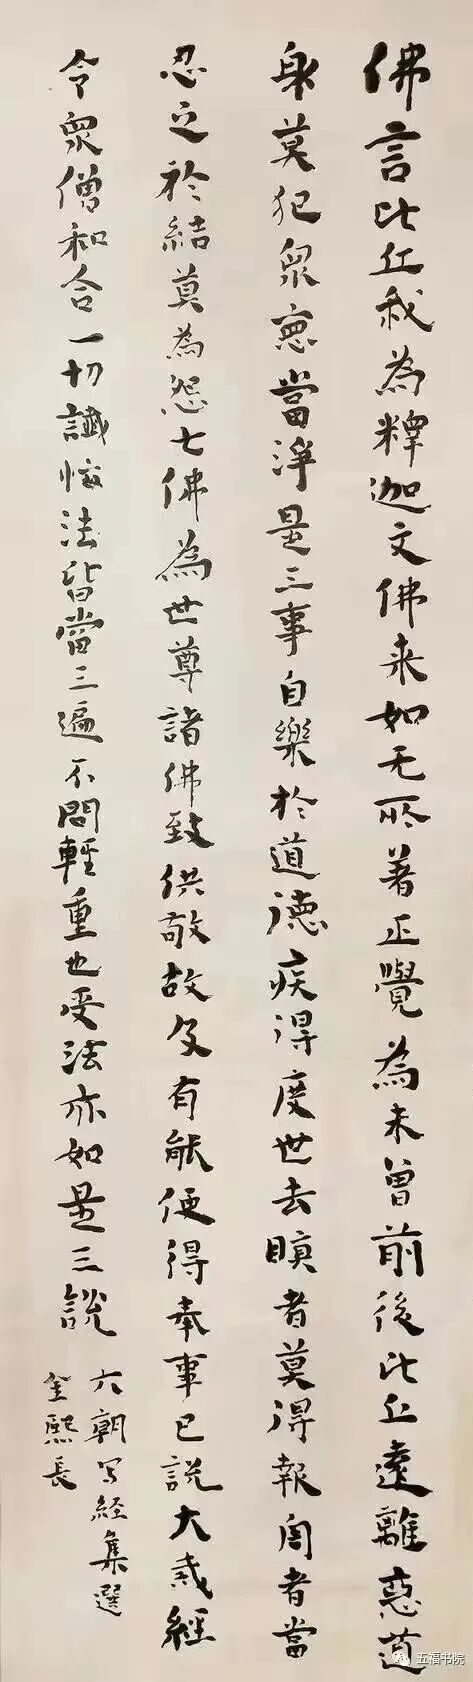 佛言比丘我為釋迦文佛来如无所著正覺為未曾前後比丘遠離惡道
身莫犯衆惡當淨是三事自樂於道德疾得度世去瞋者莫得報者當
忍之於結莫為怨七佛為世尊諸佛致供敬故及有能便得奉事已說大戒經
令衆僧和合一切讖悔法皆當三遍不問輕重也受法亦如是三說
六朝写經集選
金熙長
五福书院